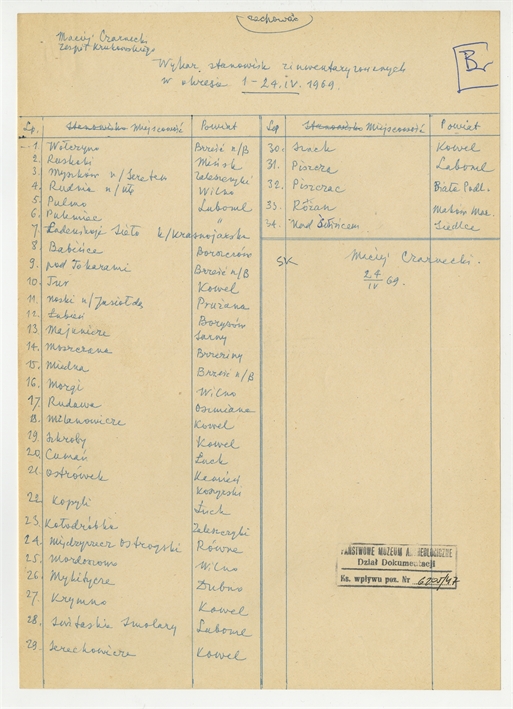 zachować
Maciej Czarnecki
Zespół Krukowskiego
Wykaz stanowisk zinwentaryzowanych
w okresie 1-24.IV.1969
Br
Lp. Stanowisko Miejscowość Powiat
1. Wołczyn Brześć n/B
2. Ruskabi Mińsk
3. Myszków n/Seretem Zaleszczyki
4. Rudnia n/ Wilno
5. Pulmo Luboml
6. Pulemiec "
7. Ładeiskoje Sieło k/Krasnojarska
8. Babińce Borszczów
9. pod Tokarami Brześć n/B
10. Tur Kowel
11. Noski n/Jasiołdą Prużana
12. Borysów
13. Majunicze Sarny
14. Moszczana Brzeziny
15. Miedna Brześć n/B
16. Morgi Wilno
17. Rudawa Oszmiana
18. Milanowicze Kowel
19. Szkroby Kowel
20. Cumań Łuck
21. Ostrówek Kamień
Koszyrski
22. Kopyli Łuck
23. Kołodróbka Zaleszczyki
24. Międzyrzecz Ostrogski Równe
25. Wilno
26. Mykitycze Dubno
27. Krymno Kowel
28. Świtaskie Smolary Luboml
29. Szrechowicze Kowel
Lp Stanowisko Miejscowość Powiat
30. Kowel
31. Piszcza Luboml
32. Piszczac Biała Podl.
33. Różan Maków Maz.
34. Nad Siedlce
SK
Maciej Czarnecki.
24
IV 69.
PAŃSTWOWE MUZEUM ARCHEOLOGICZNE
Dział Dokumentacji
Ks. wpływu poz. Nr